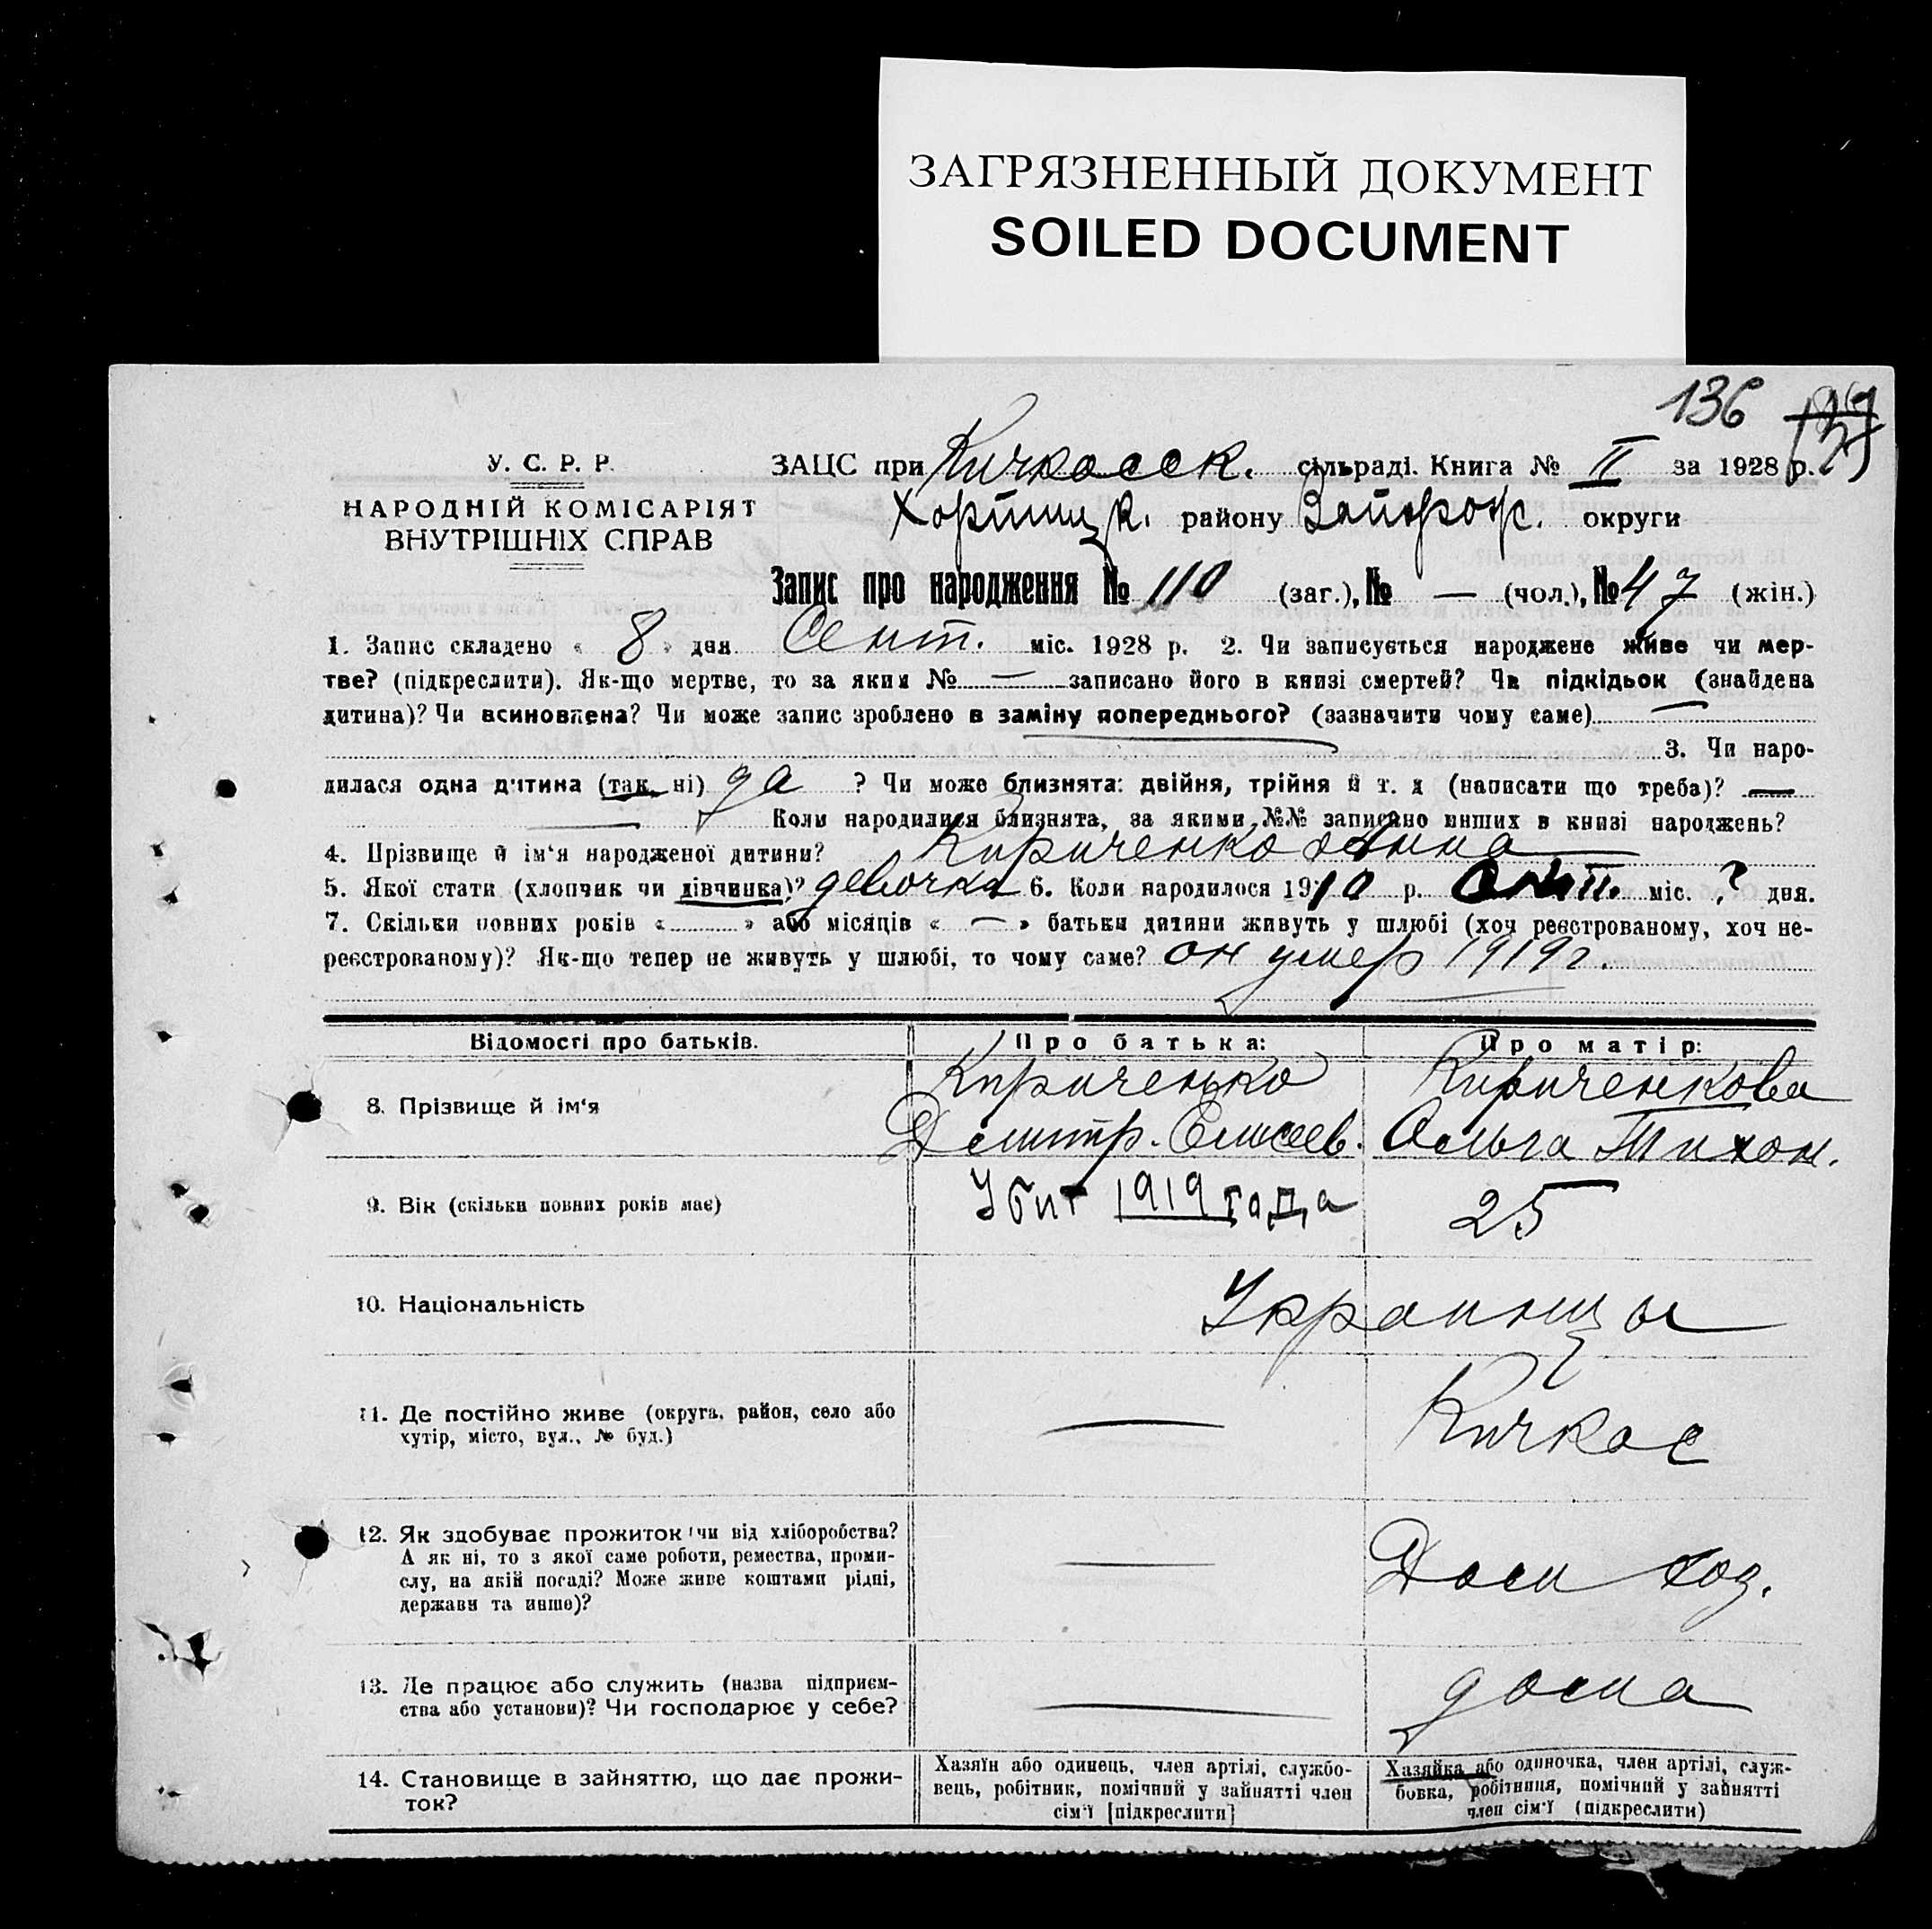 ЗАГРЯЗНЕННЫЙ ДОКУМЕНТ
SOILED DOCUMENT
136
У. С. Р. Р.
НАРОДНІЙ КОМІСАРІЯТ
ВНУТРІШНІХ СПРАВ
ЗАЦС при Кичкасск. сільраді. Книга № II за 1928 р.
Хортицк. району Запорож. округи
Запис про народження № 110 (заг.), № — (чол.), № 47 (жін.)
1. Запис складено « 8 » дня Сент. міс. 1928 р. 2. Чи записується народжене живе чи мер-
тве? (підкреслити). Як-що мертве, то за яким № — записано його в книзі смертей? Чи підкідьок (знайдена
дитина)? Чи всиновлена? Чи може запис зроблено в заміну попереднього? (зазначити чому саме) —
3. Чи наро-
дилася одна дитина (так, ні) да ? Чи може близнята: двійня, трійня й т. д (написати що треба)? —
— Коли народилися близнята, за якими №№ записано инших в книзі народжень?
4. Прізвище й ім'я народженої дитини? Кириченко Анна
5. Якої стати (хлопчик чи дівчинка)? девочка 6. Коли народилося 1910 р. міс. ? дня.
7. Скільки повних років « » або місяців « — » батьки дитини живуть у шлюбі (хоч реєстрованому, хоч не-
реєстрованому)? Як-що тепер не живуть у шлюбі, то чому саме? он умер 1919 г.
Відомості про батьків. Про батька: Про матір:
8. Прізвище й ім'я Кириченко Кириченкова
Дмитр. Елисеев. Ольга Тихон.
9. Вік (скільки повних років має) Убит 1919 года 25
10. Національність Украинцы
11. Де постійно живе (округа, район, село або
хутір, місто, вул., № буд.) — Кичкас
12. Як здобуває прожиток: чи від хліборобства?
А як ні, то з якої саме роботи, ремества, проми-
слу, на якій посаді? Може живе коштами рідні,
держави та инше)? — Дом хоз.
13. Де працює або служить (назва підприєм-
ства або установи)? Чи господарює у себе? — дома
14. Становище в зайняттю, що дає прожи-
ток?
Хазяїн або одинець, член артілі, службо-
вець, робітник, помічний у зайнятті член
сім'ї [підкреслити]
Хазяйка або одиночка, член артілі, служ-
бовка, робітниця, помічний у зайнятті
член сім'ї (підкреслити)